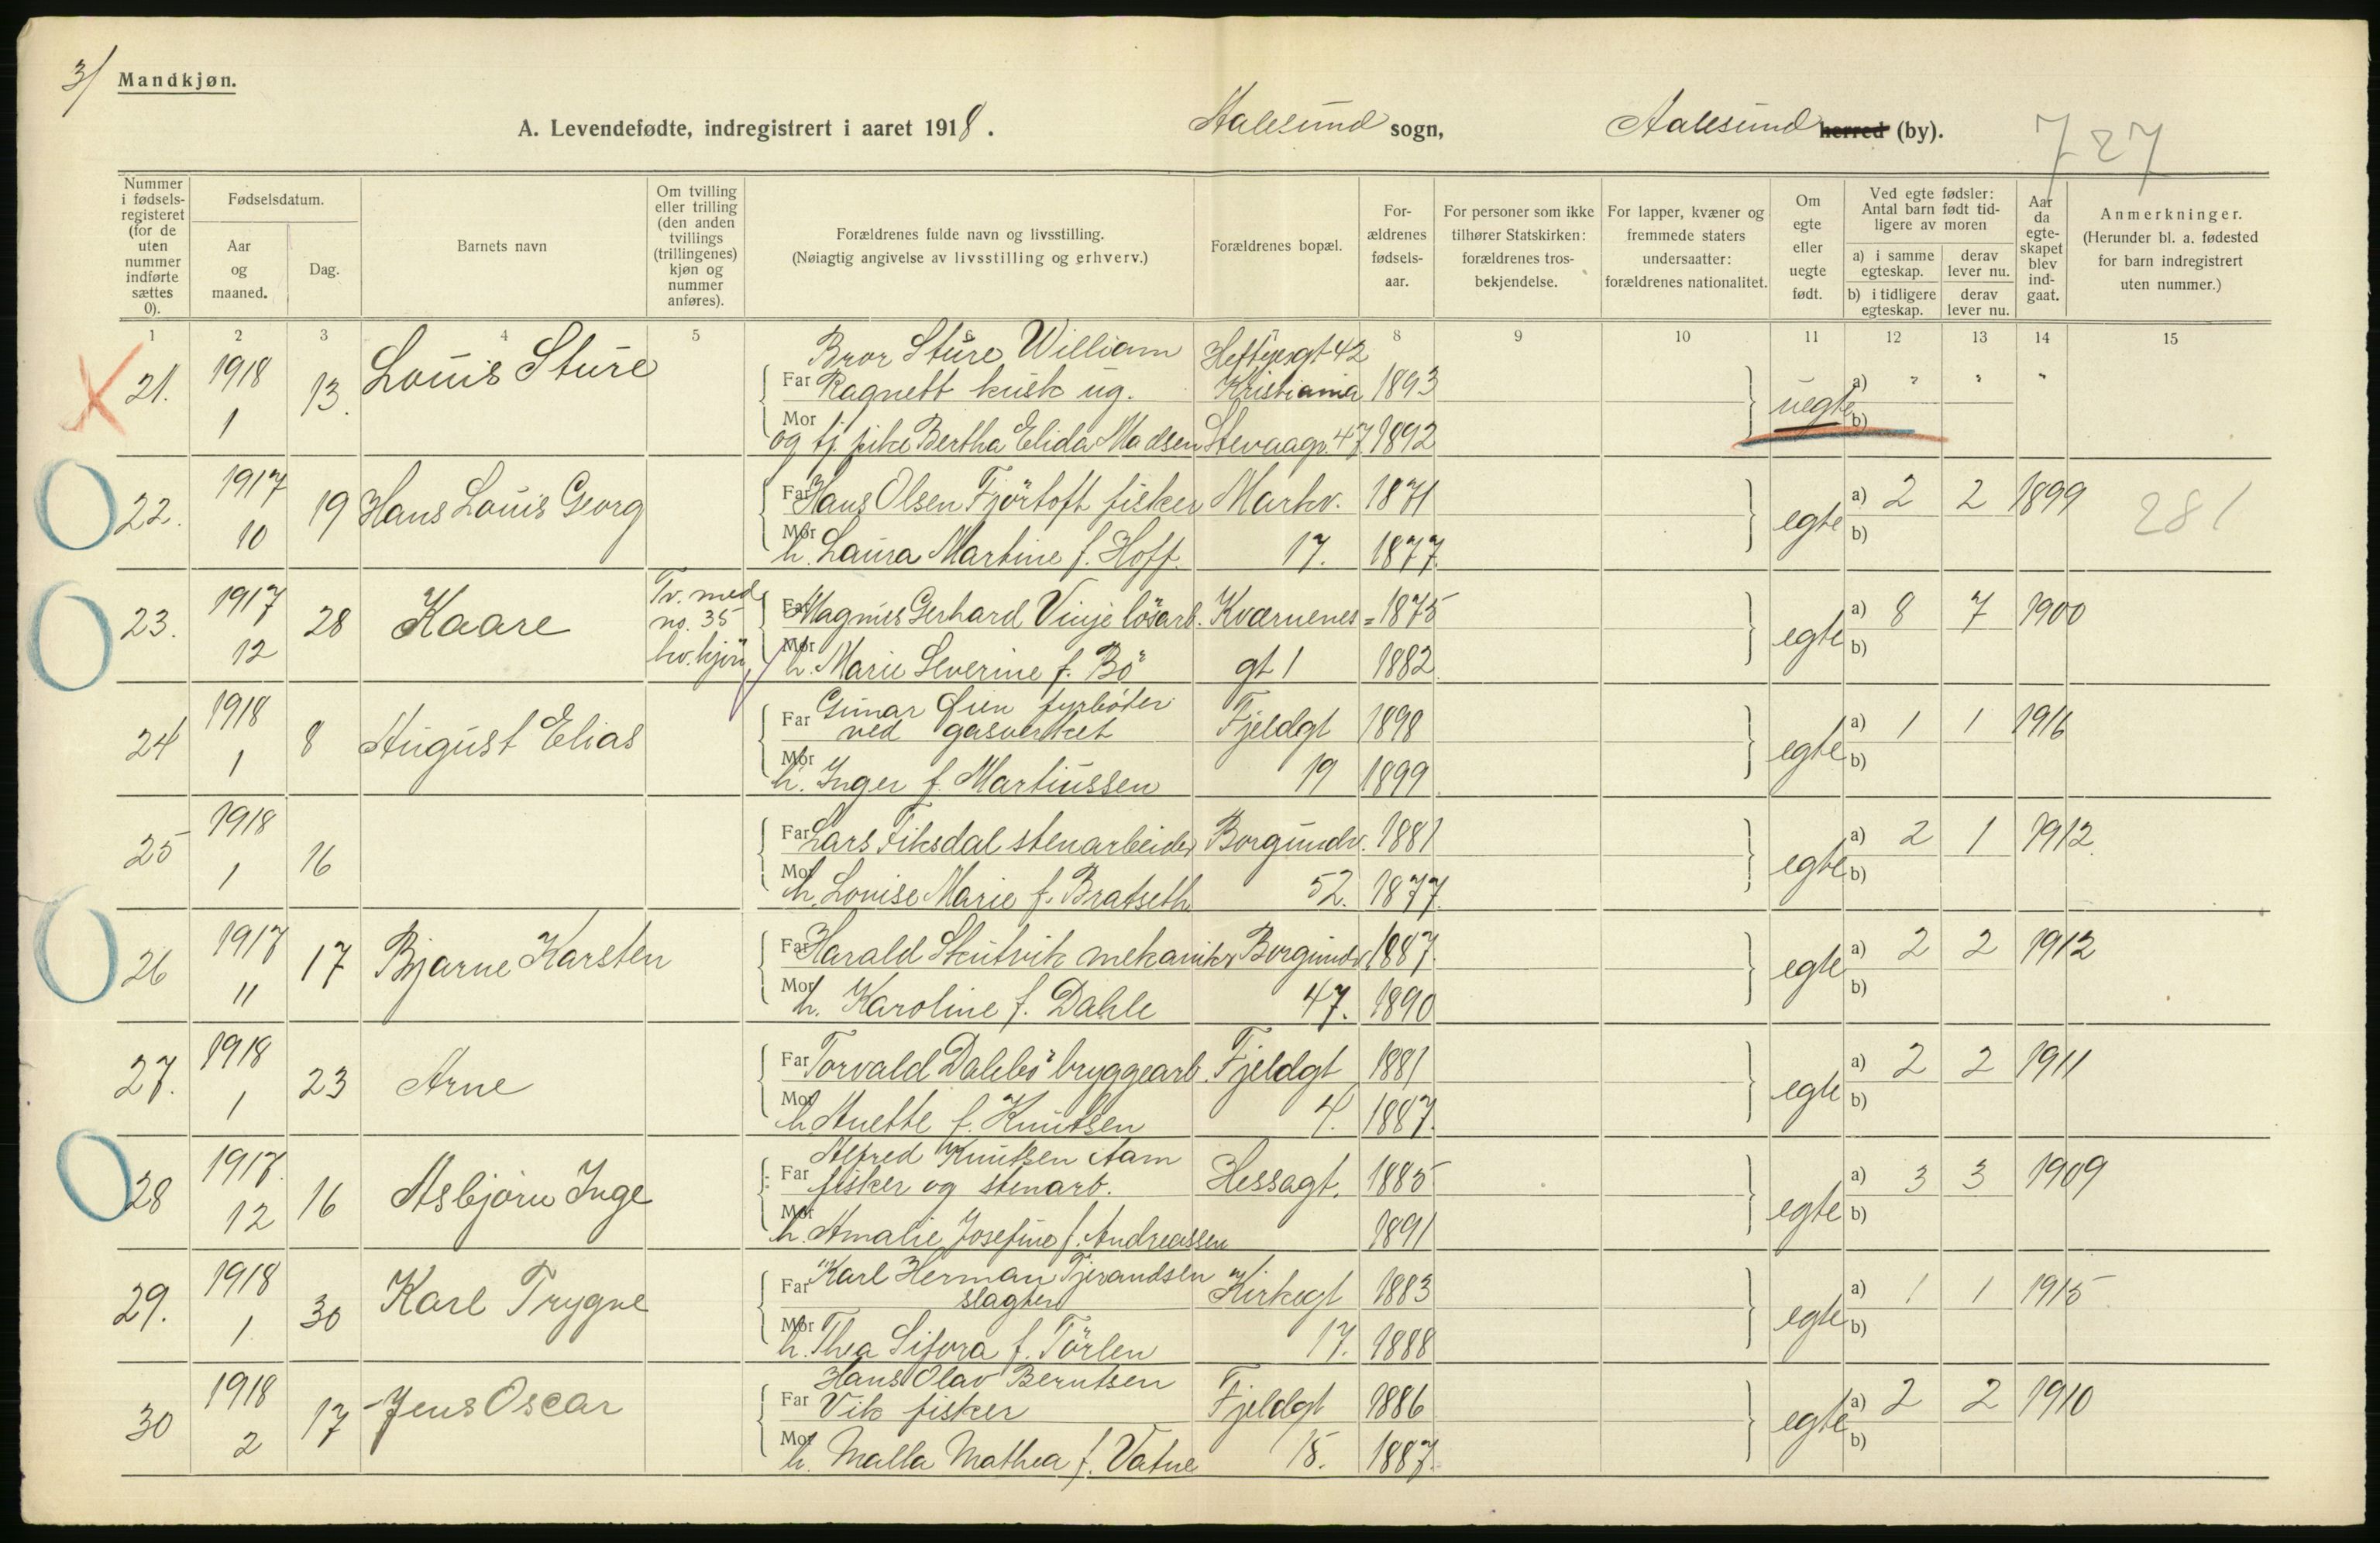 3/
Mandkjøn.
A. Levendefødte, indregistrert i aaret 1918. Aalesund sogn, Aalesund herred (by).
727
Nummer i fødsels-registeret (for de uten nummer indførte sættes 0).
Fødselsdatum.
Aar og maaned.
Dag.
Barnets navn
Om tvilling eller trilling (den anden tvillings (trillingenes) kjøn og nummer anføres).
Forældrenes fulde navn og livsstilling.
(Nøiagtig angivelse av livsstilling og erhverv.)
Forældrenes bopæl.
For-ældrenes fødsels-aar.
For personer som ikke tilhører Statskirken: forældrenes tros-bekjendelse.
For lapper, kvæner og fremmede staters undersaatter: forældrenes nationalitet.
Om egte eller uegte født.
Ved egte fødsler: Antal barn født tid-ligere av moren
a) i samme egteskap.
derav lever nu.
b) i tidligere egteskap.
derav lever nu.
Aar da egte-skapet blev ind-gaat.
Anmerkninger.
(Herunder bl. a. fødested for barn indregistrert uten nummer.)
1 2 3 4 5 6 7 8 9 10 11 12 13 14 15
21. 1918 1 13. Louis Sture
Bror Sture William Heftyesgt 42
Far Ragnett kusk ug. Kristiania 1893
Mor og tj. pike Bertha Elida Madsen Stevaagp. 47. 1892
uegte a) " " " b)
22. 1917 10 19 Hans Louis Georg
Far Hans Olsen Fjörtoft fisker Markv. 1871
Mor h. Laura Martine f. Hoff. 17. 1877.
egte a) 2 2 1899 b)
281
23. 1917 12 28 Kaare
Tv. med no. 35 kv. kjön
Far Magnus Gerhard Vinje lösarb. Kværnenes= 1875
Mor h. Marie Severine f. Bö gt 1 1882
egte a) 8 7 1900 b)
24 1918 1 8 August Elias
Gunar Öien fyrböter
Far ved gasverket Fjeldgt 1898
Mor h. Inger f. Martinussen 19 1899
egte a) 1 1 1916 b)
25 1918 1 16
Far Lars Fiksdal stenarbeider Borgundv. 1881
Mor h. Lovise Marie f. Bratseth 52. 1877.
egte a) 2 1 1912. b)
26 1917 11 17 Bjarne Karsten
Far Harald Skutvik mekaniker Borgundv 1887.
Mor h. Karoline f. Dahle 47. 1890
egte a) 2 2 1912 b)
27. 1918 1 23 Arne
Far Torvald Dalebö bryggearb. Fjeldgt 1881
Mor h. Anette f. Knutsen 4. 1887.
egte a) 2 2 1911 b)
28 1917. 12 16 Asbjörn Inge
Alfred Knutsen Aam
Far fisker og stenarb. Hessagt. 1885
Mor h. Amalie Josefine f. Andreassen 1891
egte a) 3 3 1909 b)
29. 1918 1 30 Karl Trygve
Karl Herman Tjerandsen
Far slagter Kirkegt 1883
Mor h. Thea Sifora f. Törlen 17. 1888
egte a) 1 1 1915 b)
30 1918 2 17 Jens Oscar
Hans Olav Berntsen
Far Vik fisker Fjeldgt 1886
Mor h. Malla Mathea f. Vatne 15. 1887.
egte a) 2 2 1910 b)